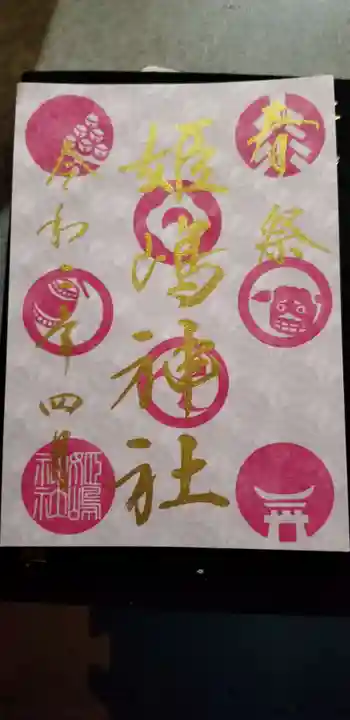 春祭
姫嶋神社
令和二年四月
姫嶋神社